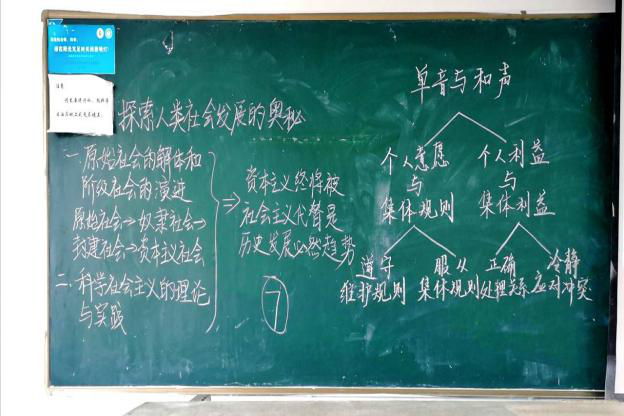 探索人类社会发展的奥秘
一、原始社会的解体和
阶级社会的演进
原始社会→奴隶社会→
封建社会→资本主义社会
二、科学社会主义的理论
与实践
⇒
资本主义终将被
社会主义代替是
历史发展必然趋势
⑦
单音与和声
个人意愿
与
集体规则
个人利益
与
集体利益
遵守
维护规则
服从
集体规则
正确
处理关系
冷静
应对冲突